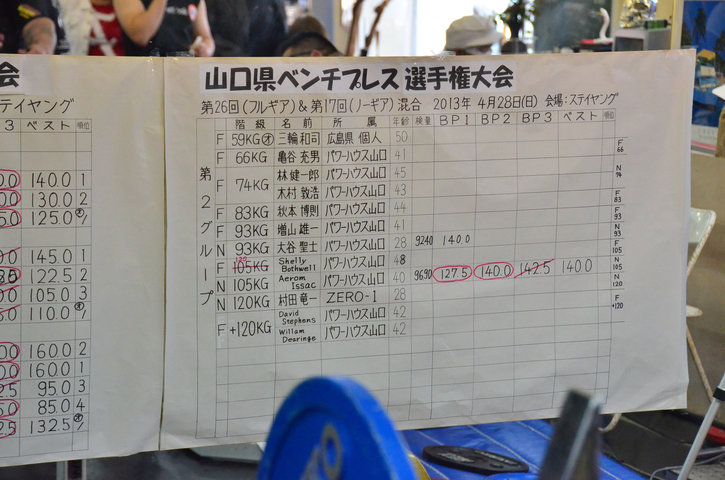 会
テイヤング
3 ベスト 順位
140.0 1
130.0 2
125.0 オ/
145.0 1
122.5 2
105.0 3
110.0 オ/
160.0 2
160.0 1
95.0 3
85.0 4
132.5 オ/
山口県ベンチプレス選手権大会
第26回(フルギア)&第17回(ノーギア)混合 2013年 4月28日(日) 会場:ステイヤング
階級 名前 所属 年齢 検量 BP1 BP2 BP3 ベスト 順位
第2グループ
F 59KG オ 三輪和司 広島県 個人 50
F 66KG 亀谷充男 パワーハウス山口 41 F 66
F 74KG 林健一郎 パワーハウス山口 45 N 74
木村敦浩 パワーハウス山口 43
F 83KG 秋本博則 パワーハウス山口 44 F 83
F 93KG 増山雄一 パワーハウス山口 41 F 93
N 93KG 大谷聖士 パワーハウス山口 28 92.40 140.0 N 93
F 105KG 120 Shelly Bothwell パワーハウス山口 48 F 105
N 105KG Aerom Issac パワーハウス山口 40 96.90 127.5 140.0 142.5 140.0 N 105
N 120KG 村田竜一 ZERO-1 28 N 120
F +120KG David Stephens パワーハウス山口 42 F +120
Willam Dearinge パワーハウス山口 42